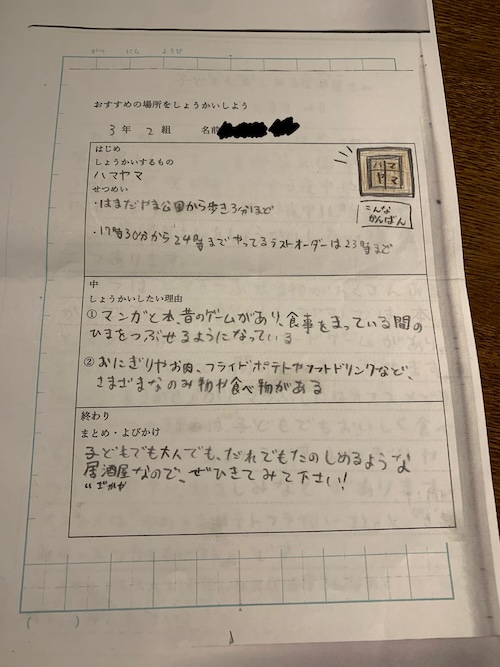 がつ にち ようび
おすすめの場所をしょうかいしよう
3年 2組 名前
はじめ
しょうかいするもの
ハマヤマ
せつめい
・はまだやま公園から歩き3分ほど
・17時30分から24時までやってるラストオーダーは23時まで
ハマ
ヤマ
こんな
かんばん
中
しょうかいしたい理由
①マンガと本、昔のゲームがあり、食事をまっている間の
ひまをつぶせるようになっている
②おにぎりやお肉、フライドポテトやソフトドリンクなど、
さまざまなのみ物や食べ物がある
終わり
まとめ・よびかけ
子どもでも大人でも、だれでもたのしめるような
居酒屋なので、ぜひきてみて下さい!
いざかや
( )